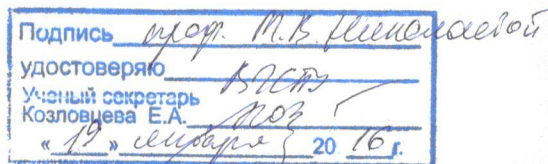 Подпись проф. М.В. Николаевой
удостоверяю
Ученый секретарь
Козловцева Е.А.
« 19 » января 20 16 г.